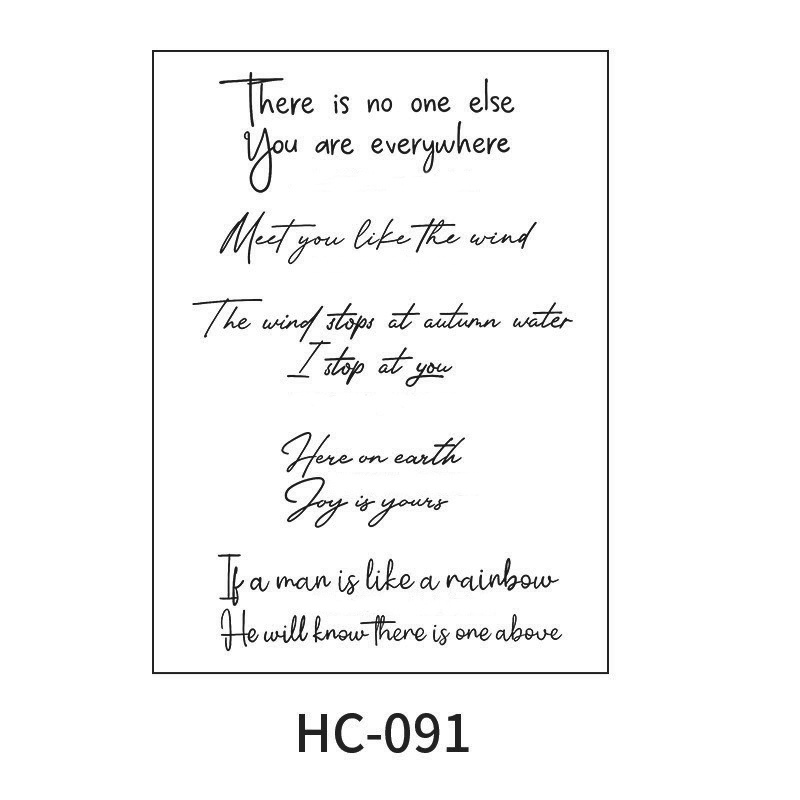 There is no one else
You are everywhere
Meet you like the wind
The wind stops at autumn water
I stop at you
Here on earth
Joy is yours
If a man is like a rainbow
He will know there is one above
HC-091